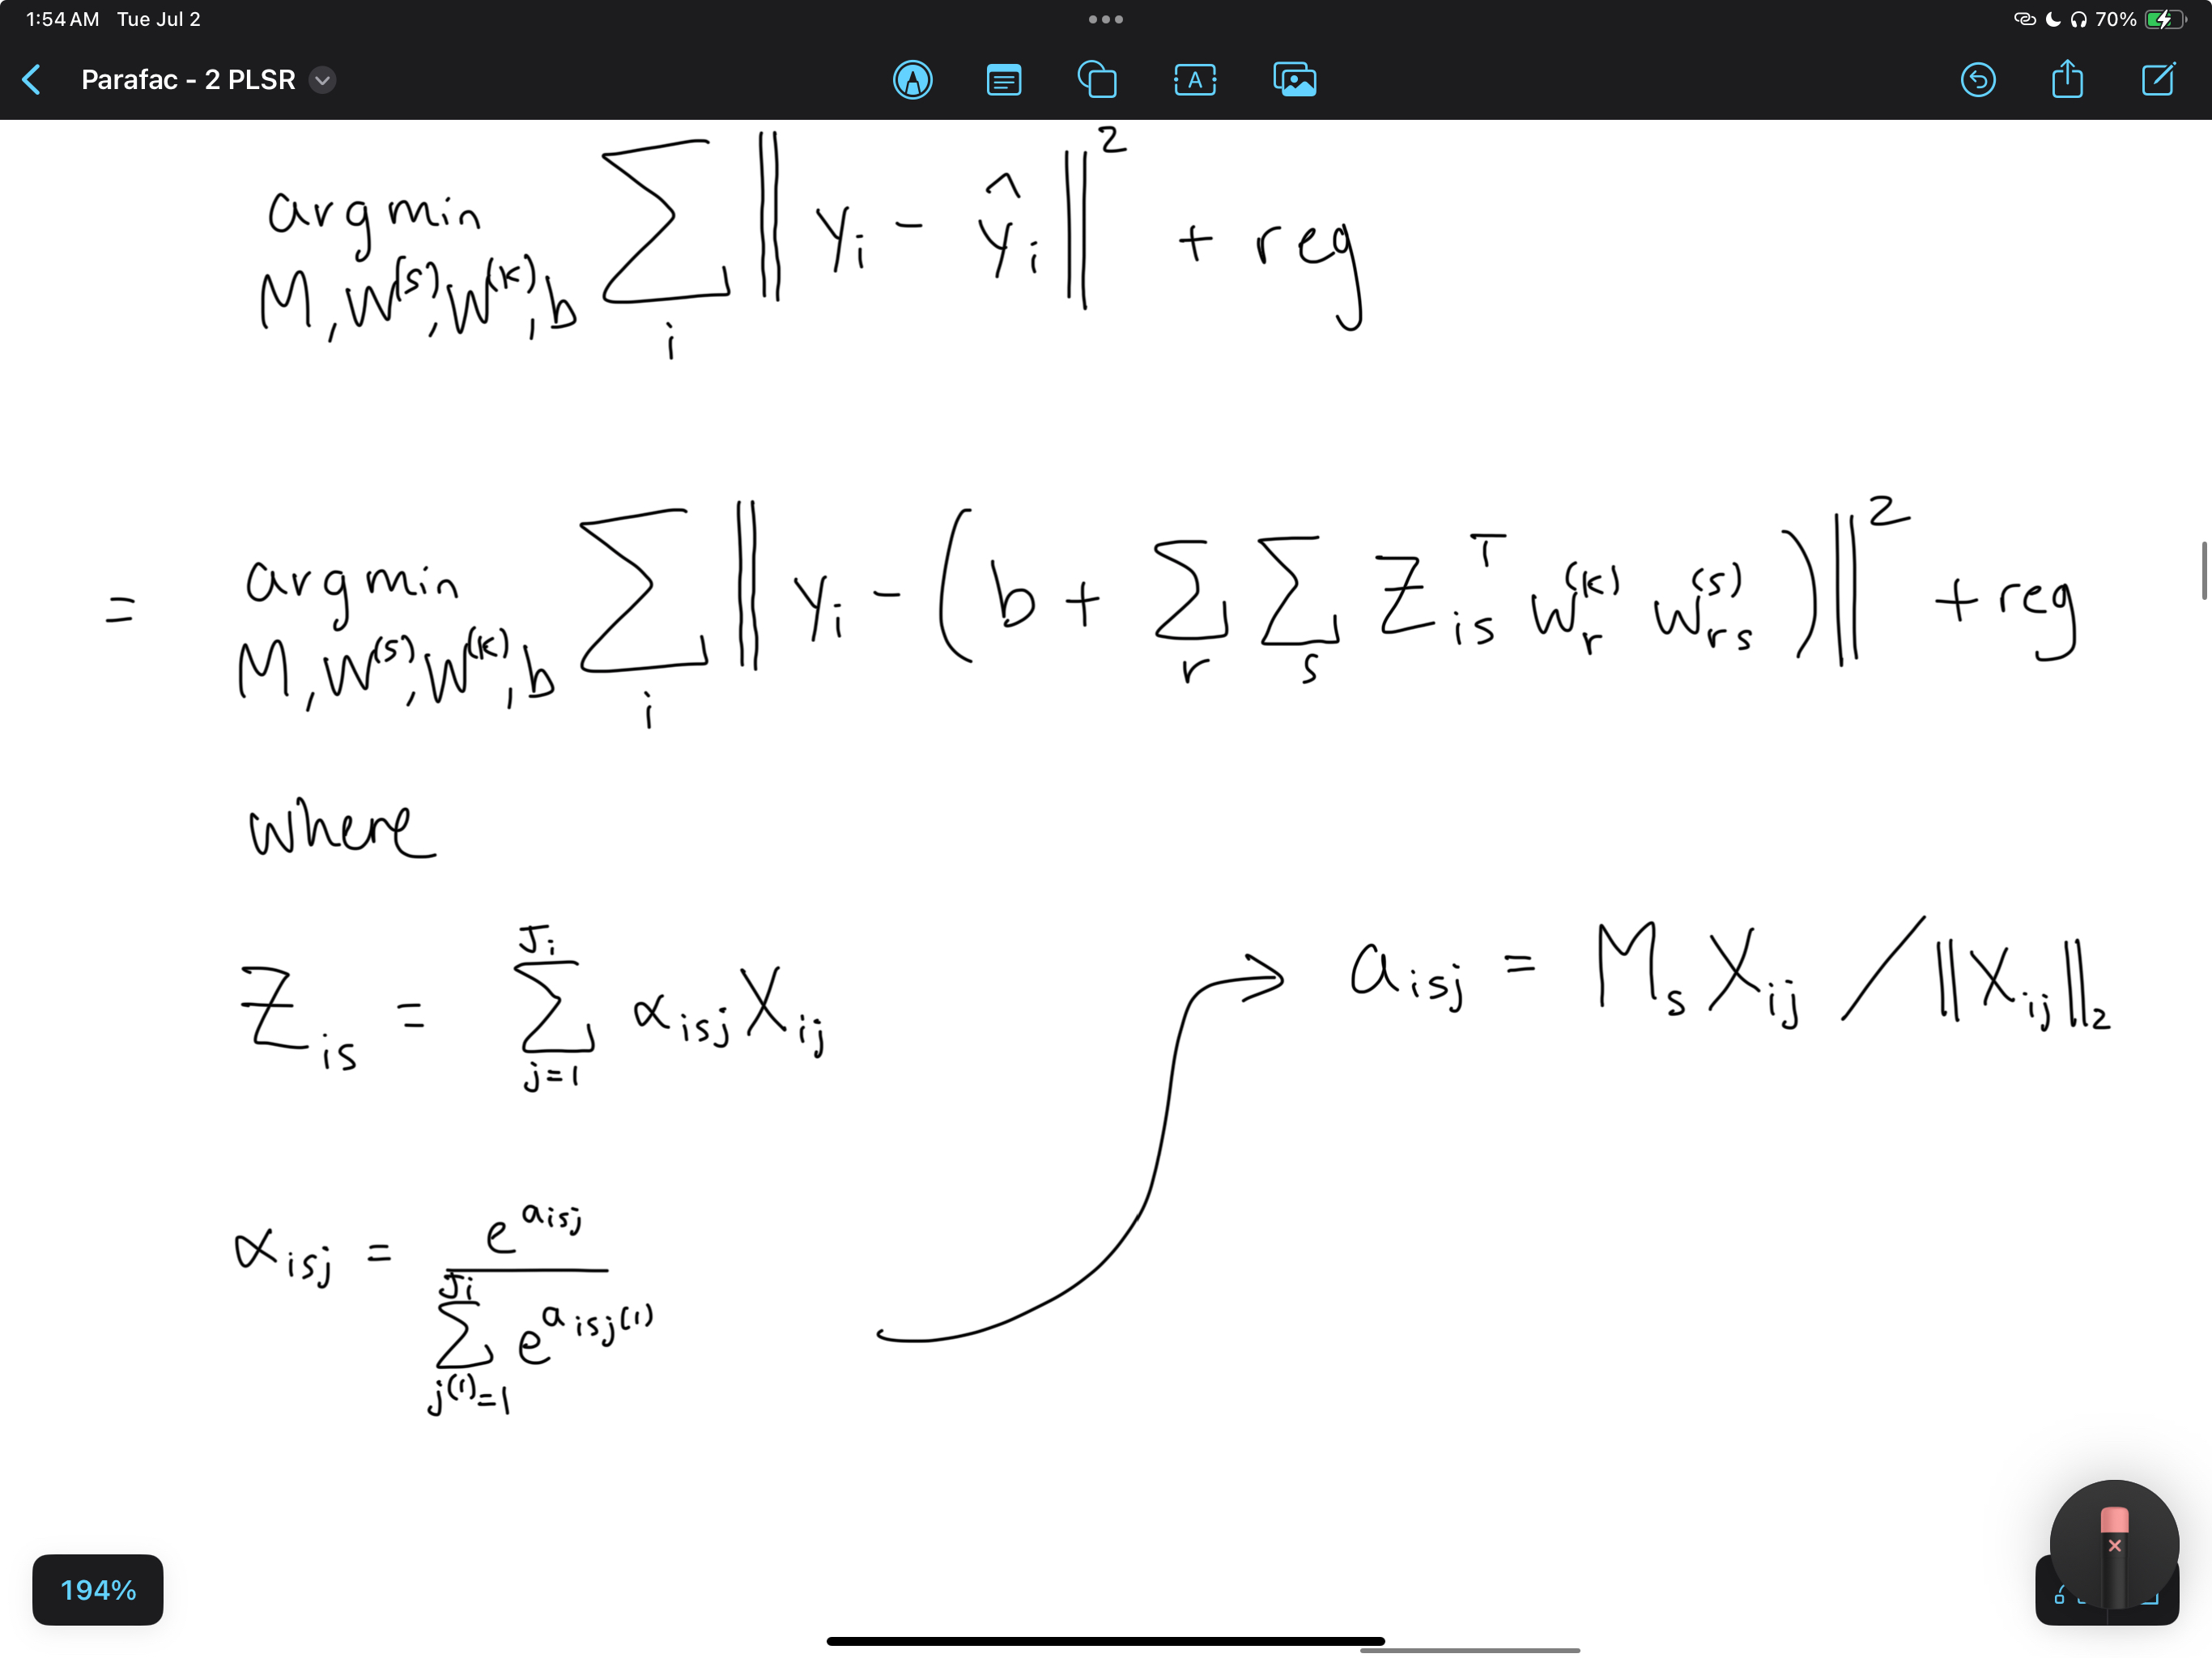 1:54 AM Tue Jul 2 70%
Parafac - 2 PLSR
argmin Σ ‖ yᵢ - ŷᵢ ‖² + reg
M, W⁽ˢ⁾, W⁽ᵏ⁾, b i
= argmin Σ ‖ yᵢ - ( b + Σ Σ Z_is^T w_r^(k) w_rs^(s) ) ‖² + reg
M, W⁽ˢ⁾, W⁽ᵏ⁾, b i r s
where
Z_is = Σ_{j=1}^{J_i} α_isj X_ij
a_isj = M_s X_ij / ‖X_ij‖₂
α_isj = e^{a_isj} / Σ_{j^(1)=1}^{J_i} e^{a_isj^(1)}
194%